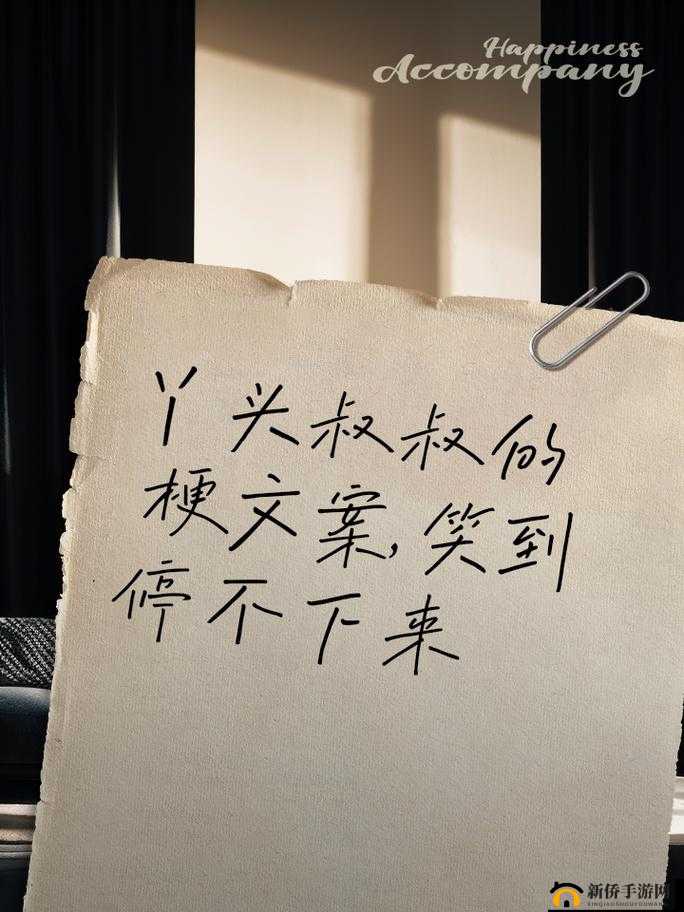 Happiness
Accompany
丫头叔叔的
梗文案,笑到
停不下来
新侨手游网
XINQIAOSHOUYOUWANG